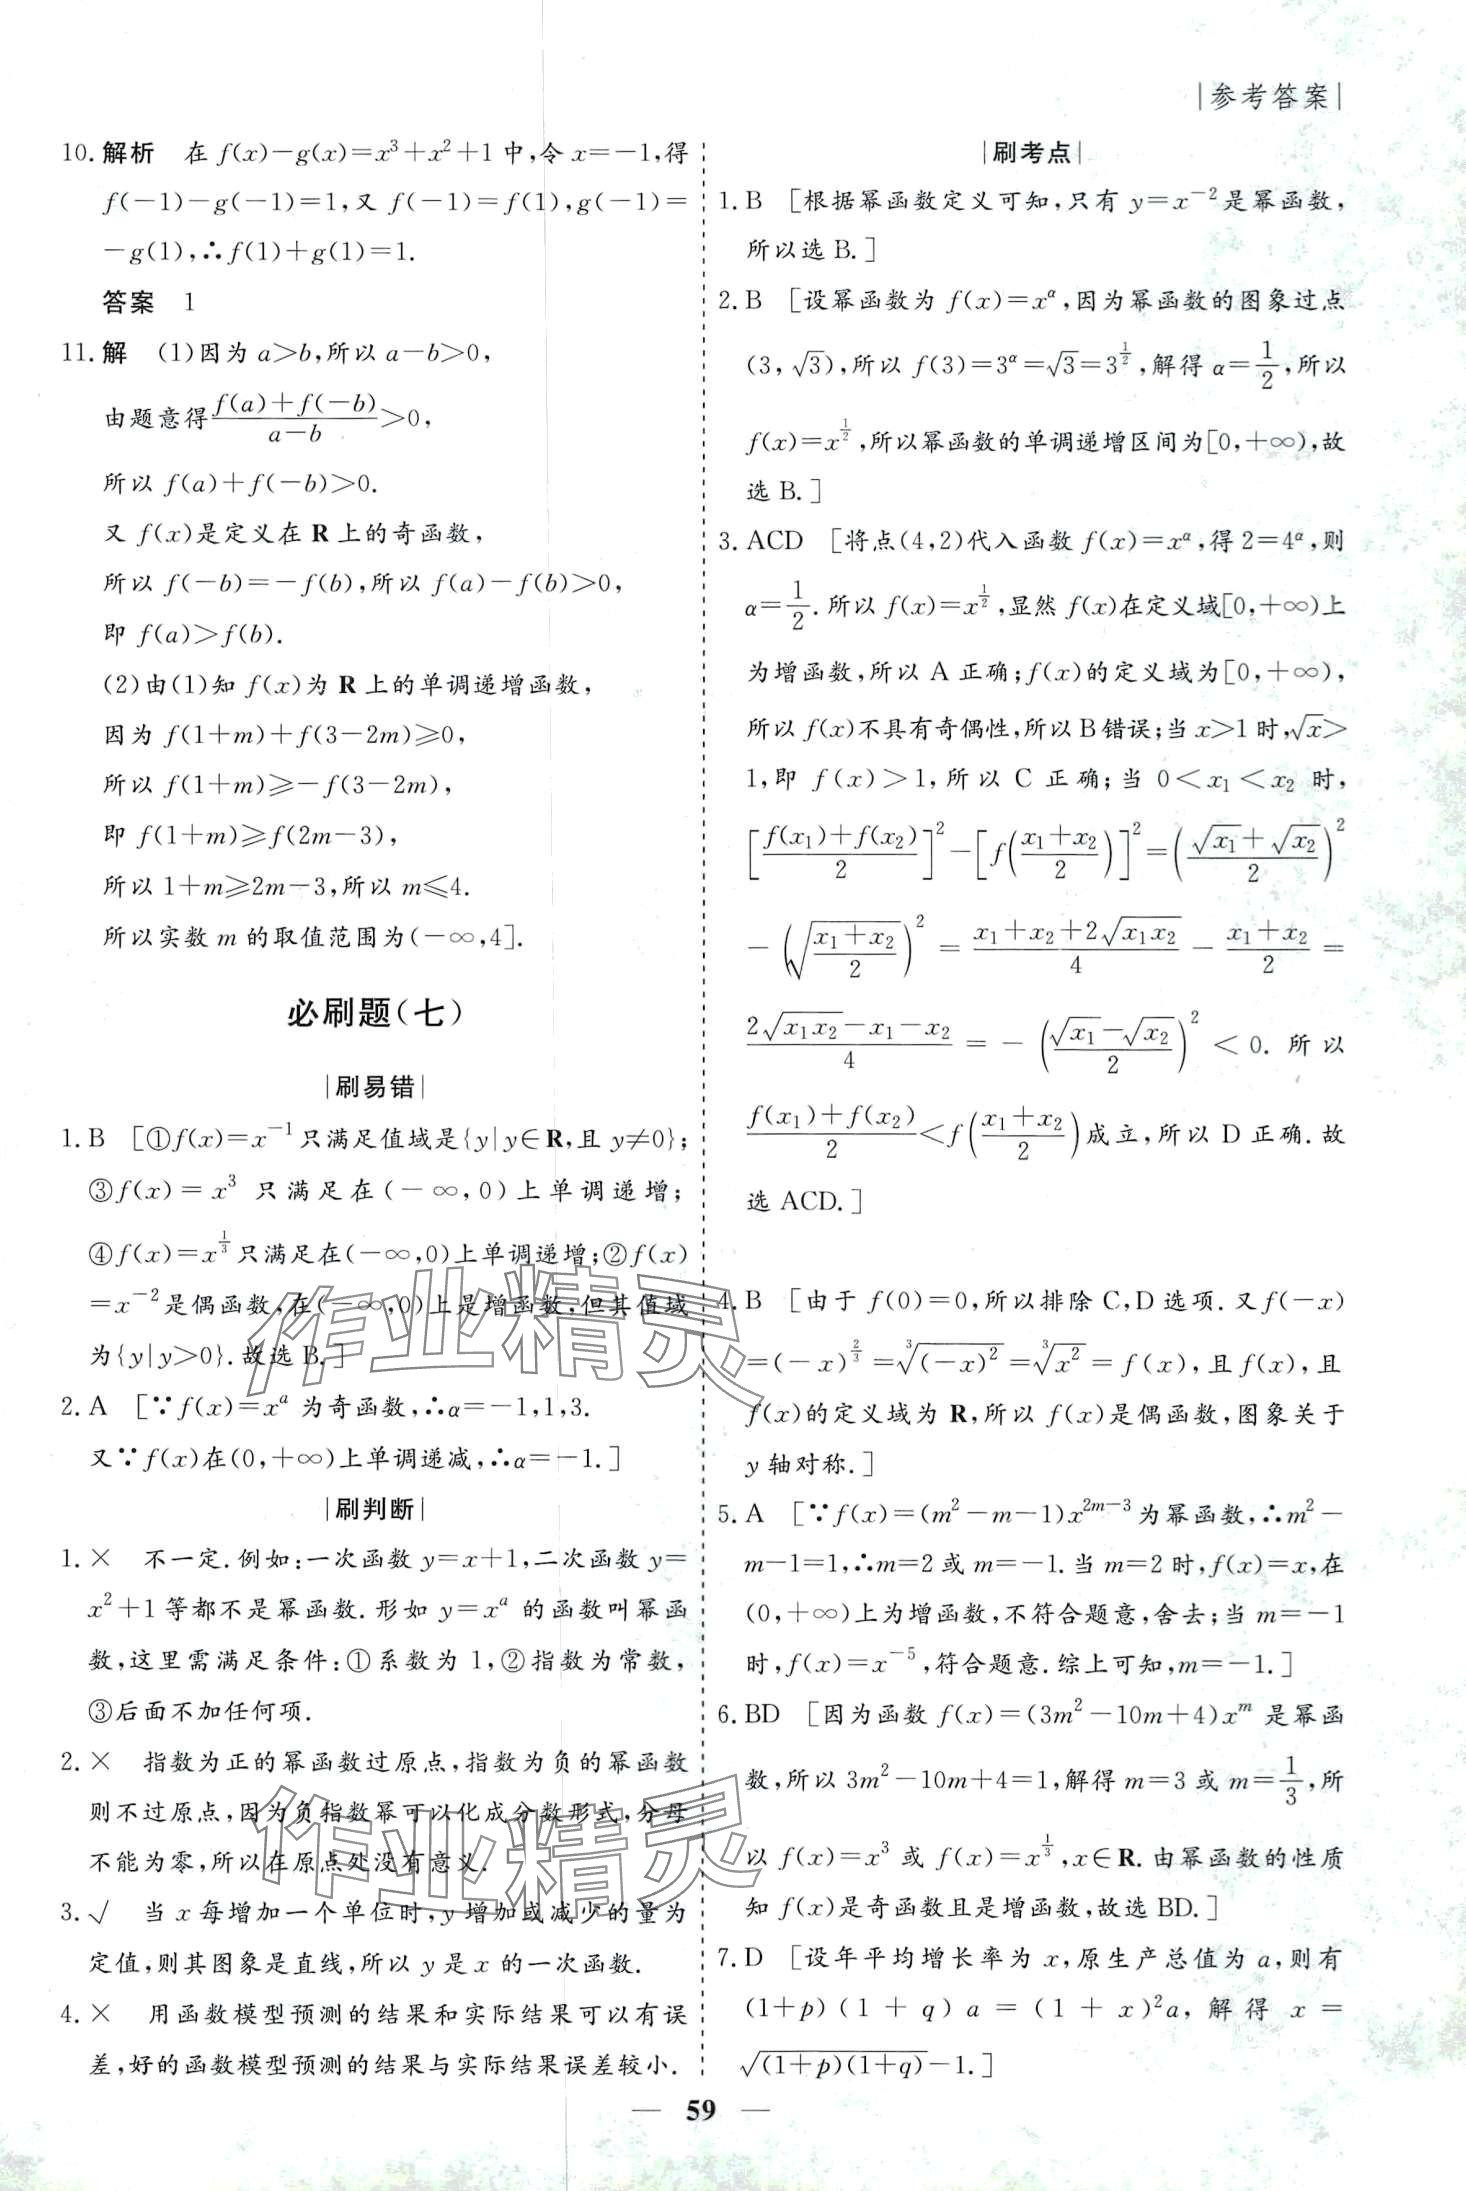 |参考答案|
10. 解析　在 f(x)－g(x)＝x³＋x²＋1 中,令 x＝－1,得
f(－1)－g(－1)＝1,又 f(－1)＝f(1),g(－1)＝
－g(1),∴f(1)＋g(1)＝1.
答案　1
11. 解　(1)因为 a＞b,所以 a－b＞0,
由题意得\frac{f(a)＋f(－b)}{a－b}＞0,
所以 f(a)＋f(－b)＞0.
又 f(x)是定义在 R 上的奇函数,
所以 f(－b)＝－f(b),所以 f(a)－f(b)＞0,
即 f(a)＞f(b).
(2)由(1)知 f(x)为 R 上的单调递增函数,
因为 f(1＋m)＋f(3－2m)≥0,
所以 f(1＋m)≥－f(3－2m),
即 f(1＋m)≥f(2m－3),
所以 1＋m≥2m－3,所以 m≤4.
所以实数 m 的取值范围为(－∞,4].
必刷题(七)
|刷易错|
1. B　[①f(x)＝x^{－1}只满足值域是{y|y∈R,且 y≠0};
③f(x)＝x³ 只满足在(－∞,0)上单调递增;
④f(x)＝x^{\frac{1}{3}}只满足在(－∞,0)上单调递增;②f(x)
＝x^{－2}是偶函数,在(－∞,0)上是增函数,但其值域
为{y|y＞0}.故选 B.]
2. A　[∵f(x)＝x^{a} 为奇函数,∴α＝－1,1,3.
又∵f(x)在(0,＋∞)上单调递减,∴α＝－1.]
|刷判断|
1. ×　不一定.例如:一次函数 y＝x＋1,二次函数 y＝
x²＋1 等都不是幂函数.形如 y＝x^{a} 的函数叫幂函
数,这里需满足条件:①系数为 1,②指数为常数,
③后面不加任何项.
2. ×　指数为正的幂函数过原点,指数为负的幂函数
则不过原点,因为负指数幂可以化成分数形式,分母
不能为零,所以在原点处没有意义.
3. √　当 x 每增加一个单位时,y 增加或减少的量为
定值,则其图象是直线,所以 y 是 x 的一次函数.
4. ×　用函数模型预测的结果和实际结果可以有误
差,好的函数模型预测的结果与实际结果误差较小.
|刷考点|
1. B　[根据幂函数定义可知,只有 y＝x^{－2}是幂函数,
所以选 B.]
2. B　[设幂函数为 f(x)＝x^{α},因为幂函数的图象过点
(3,√3),所以 f(3)＝3^{α}＝√3＝3^{\frac{1}{2}},解得 α＝\frac{1}{2},所以
f(x)＝x^{\frac{1}{2}},所以幂函数的单调递增区间为[0,＋∞),故
选 B.]
3. ACD　[将点(4,2)代入函数 f(x)＝x^{α},得 2＝4^{α},则
α＝\frac{1}{2}.所以 f(x)＝x^{\frac{1}{2}},显然 f(x)在定义域[0,＋∞)上
为增函数,所以 A 正确;f(x)的定义域为[0,＋∞),
所以 f(x)不具有奇偶性,所以 B 错误;当 x＞1 时,√x＞
1,即 f(x)＞1,所以 C 正确;当 0＜x₁＜x₂ 时,
[\frac{f(x₁)＋f(x₂)}{2}]²－[f(\frac{x₁＋x₂}{2})]²＝(\frac{√x₁＋√x₂}{2})²
－(\sqrt{\frac{x₁＋x₂}{2}})²＝\frac{x₁＋x₂＋2\sqrt{x₁x₂}}{4}－\frac{x₁＋x₂}{2}＝
\frac{2\sqrt{x₁x₂}－x₁－x₂}{4}＝－(\frac{√x₁－√x₂}{2})²＜0.所以
\frac{f(x₁)＋f(x₂)}{2}＜f(\frac{x₁＋x₂}{2})成立,所以 D 正确.故
选 ACD.]
4. B　[由于 f(0)＝0,所以排除 C,D 选项.又 f(－x)
＝(－x)^{\frac{2}{3}}＝\sqrt[3]{(－x)²}＝\sqrt[3]{x²}＝f(x),且 f(x),且
f(x)的定义域为 R,所以 f(x)是偶函数,图象关于
y 轴对称.]
5. A　[∵f(x)＝(m²－m－1)x^{2m－3}为幂函数,∴m²－
m－1＝1,∴m＝2 或 m＝－1.当 m＝2 时,f(x)＝x,在
(0,＋∞)上为增函数,不符合题意,舍去;当 m＝－1
时,f(x)＝x^{－5},符合题意.综上可知,m＝－1.]
6. BD　[因为函数 f(x)＝(3m²－10m＋4)x^{m} 是幂函
数,所以 3m²－10m＋4＝1,解得 m＝3 或 m＝\frac{1}{3},所
以 f(x)＝x³ 或 f(x)＝x^{\frac{1}{3}},x∈R.由幂函数的性质
知 f(x)是奇函数且是增函数,故选 BD.]
7. D　[设年平均增长率为 x,原生产总值为 a,则有
(1＋p)(1＋q)a＝(1＋x)²a,解得 x＝
\sqrt{(1＋p)(1＋q)}－1.]
— 59 —
作业精灵
作业精灵